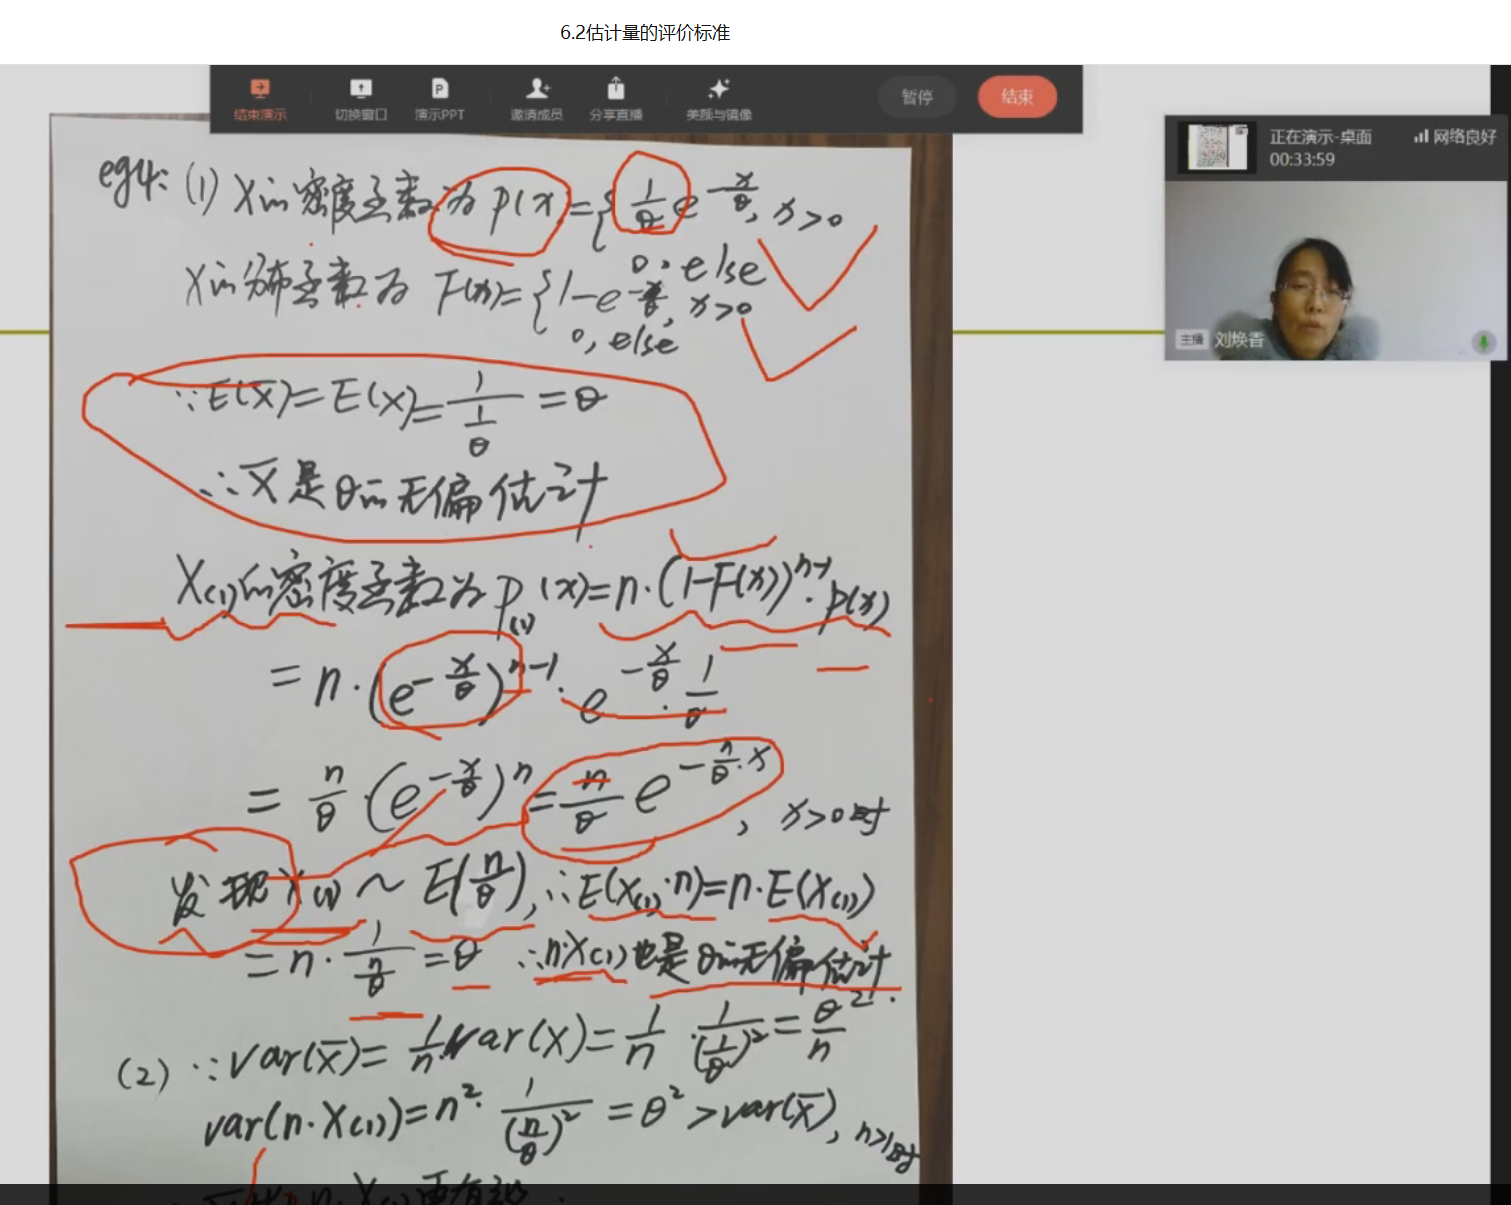 6.2估计量的评价标准
结束演示 切换窗口 演示PPT 邀请成员 分享直播 美颜与镜像 暂停 结束
正在演示-桌面 网络良好
00:33:59
主播 刘焕香
eg4: (1) X的密度函数为 p(x)={ 1/θ e^{-x/θ}, x>0
0, else
X的分布函数为 F(x)={ 1-e^{-x/θ}, x>0
0, else
∵E(X̄)=E(X)=1/(1/θ)=θ
∴X̄是θ的无偏估计
X(1)的密度函数为 p(1)(x)=n·(1-F(x))^{n-1}·p(x)
=n·(e^{-x/θ})^{n-1}·e^{-x/θ}·1/θ
=n/θ·(e^{-x/θ})^n=n/θ e^{-n/θ·x}, x>0时
发现X(1)~E(n/θ), ∵E(X(1)·n)=n·E(X(1))
=n·1/(n/θ)=θ ∴n·X(1)也是θ的无偏估计.
(2) ∵var(X̄)=1/n·var(X)=1/n·1/(1/θ)²=θ²/n
var(n·X(1))=n²·1/(n/θ)²=θ²>var(X̄), n>1时
X̄比n·X(1)更有效.